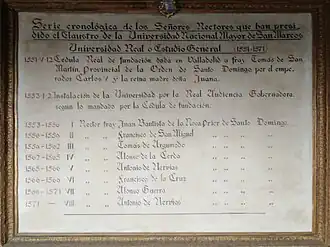 Serie cronológica de los Señores Rectores que han presi
dido el Claustro de la Universidad Nacional Mayor de San Marcos
Universidad Real o Estudio General (1551-1571)
1551 V 12 Cédula Real de fundación dada en Valladolid a fray Tomás de San
Martín, Provincial de la Orden de Santo Domingo, por el empe
rador Carlos V y la reina madre doña Juana.
1553 I 2 Instalación de la Universidad por la Real Audiencia Gobernadora,
según lo mandado por la Cédula de fundación.
1553-1556 I Rector fray Juan Bautista de la Roca Prior de Santo Domingo
1556-1556 II „ „ Francisco de San Miguel „ „ „
1556-1562 III „ „ Tomás de Argumedo „ „ „
1562-1565 IV „ „ Alonso de la Cerda „ „ „
1565-1566 V „ „ Antonio de Hervias „ „ „
1566-1566 VI „ „ Francisco de la Cruz „ „ „
1566-1571 VII „ „ Alonso Guerra „ „ „
1571 — VIII „ „ Antonio de Hervias „ „ „